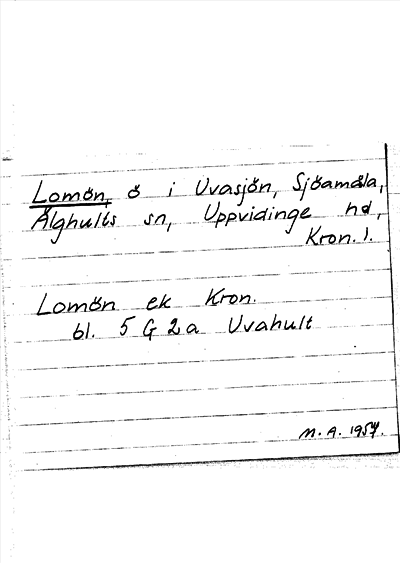 Lomön, ö i Uvasjön, Sjöamåla,
Älghults sn, Uppvidinge hd,
Kron. l.
Lomön ek Kron.
bl. 5 G 2a Uvahult
M. A. 1954.